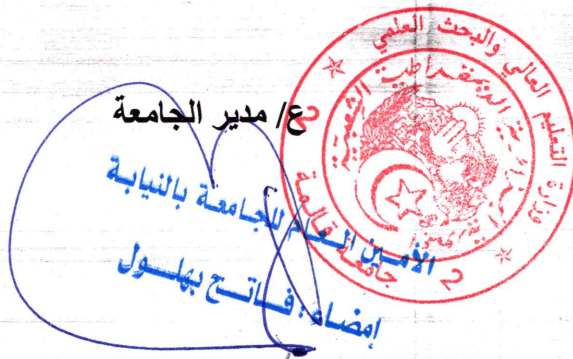 ع/ مدير الجامعة
الأمين العام للجامعة بالنيابة
إمضاء: فاتح بهلول
وزارة التعليم العالي والبحث العلمي
الجمهورية الجزائرية الديمقراطية الشعبية
جامعة قالمة
2